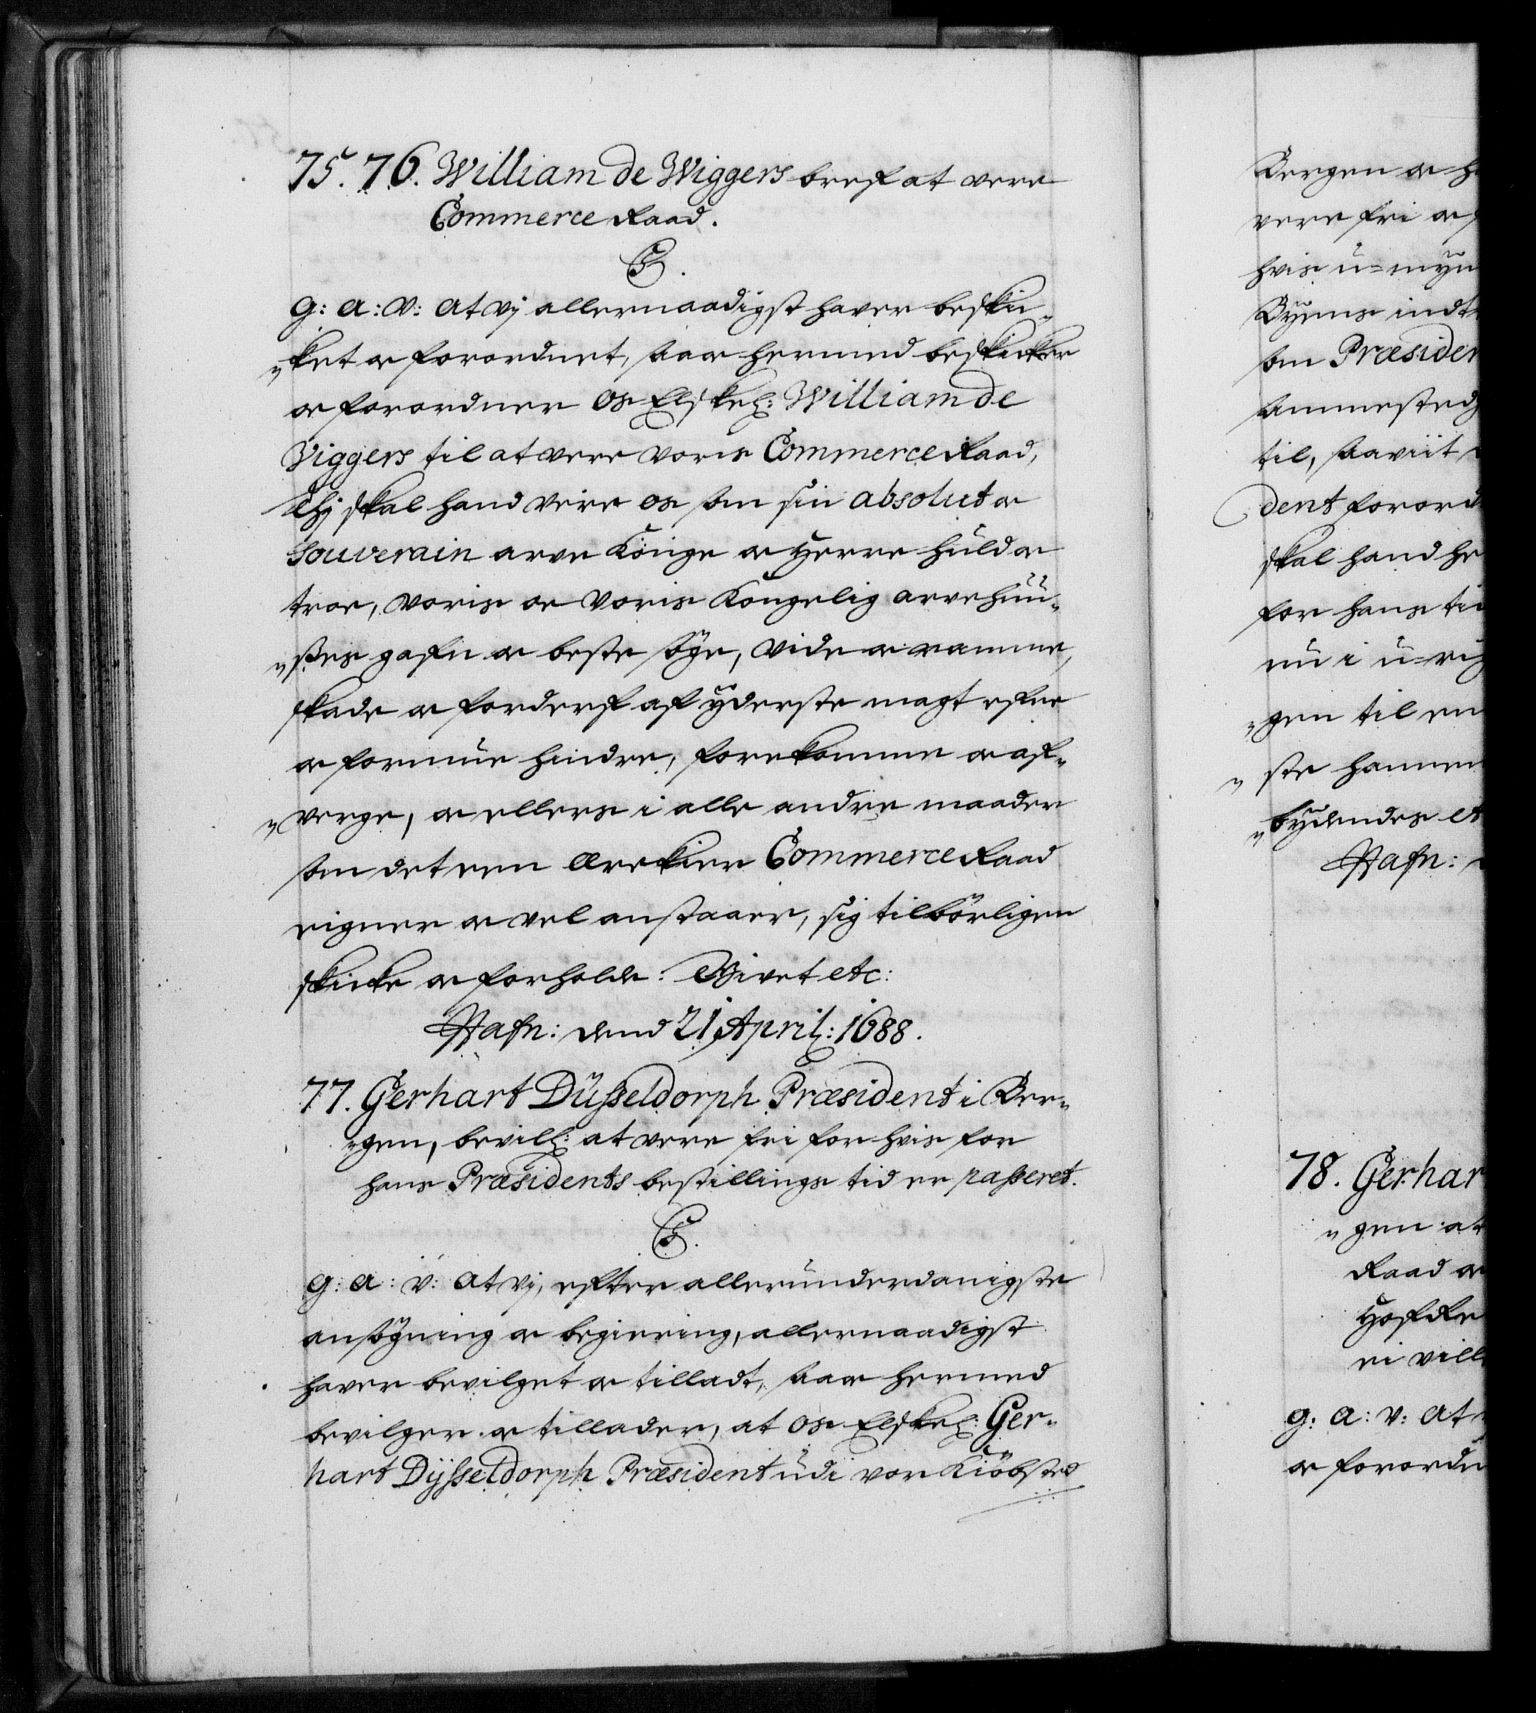 75. 76. William de Wiggers bref at vere
Commerce Raad.
C5.
G: A: V: At vj allernaadigst haver beskic¬
¬ket oc forordnet, saa oc hermed beskicker
oc forordner Os Elskel: William de
Viggers til at vere voris Commerce Raad,
Thj skal hand vere os som sin absolut oc
souverain arve Konge oc Herre huld oc
troe, voris oc voris Kongelig arvehuu¬
¬ses gafn oc beste søge, vide oc ramme,
skade oc forderf af yderste magt efne
oc formue hindre, forekomme oc af¬
¬verge, oc ellers i alle andre maader
som det een ærekier Commerce Raad
eigner oc vel anstaaer, sig tilbörligen
skicke oc forholde. Givet etc:
Hafn: dend 21 April: 1688.
77. Gerhart Düsseldorph Præsident i Ber¬
¬gen, bevill: at vere fri for hvis for
hans Præsidents bestillings tid er passeret.
C5.
G: A: V: At vj, efter allerunderdanigste
ansøgning oc begiering, allernaadigst
haver bevilget oc tilladt, saa oc hermed
bevilger oc tillader, at os Elskel: Ger¬
hart Dÿsseldorph Præsident udi vor Kiöbsted
Bergen oc h
vere fri oc f
hvis u=myn
Byens indt
som Præsiden
sammesteds
til, saaviit
dent forord
skal hand he
for hans tid
nu i u-rig
¬gen til en
¬ste hannem
¬bydendes et
Hafn:
78. Gerhar
¬gen at
Raad oc
Hof Re
ei vill
G: A: V: At
oc forordn